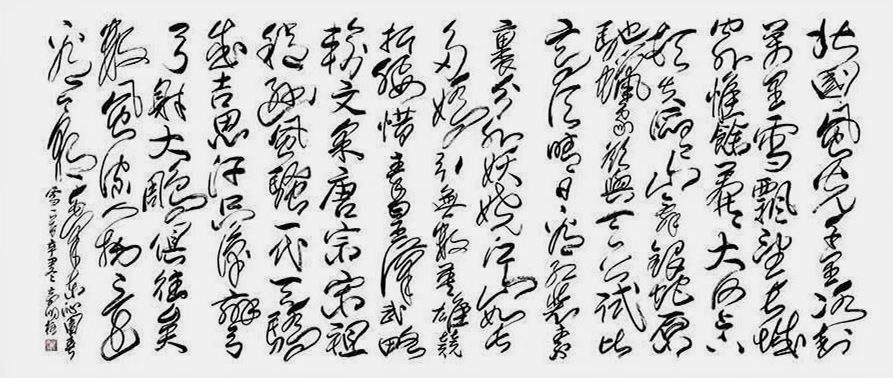 北國風光千里冰封
萬里雪飄望長城
內外惟餘莽莽大河上下
頓失滔滔山舞銀蛇原
馳蠟象欲與天公試比
高須晴日看紅裝素
裹分外妖嬈江山如此
多嬌引無數英雄競
折腰惜秦皇漢武略
輸文采唐宗宋祖
稍遜風騷一代天驕
成吉思汗只識彎
弓射大雕俱往矣
數風流人物還
看今朝 毛澤東沁園春
雪一首